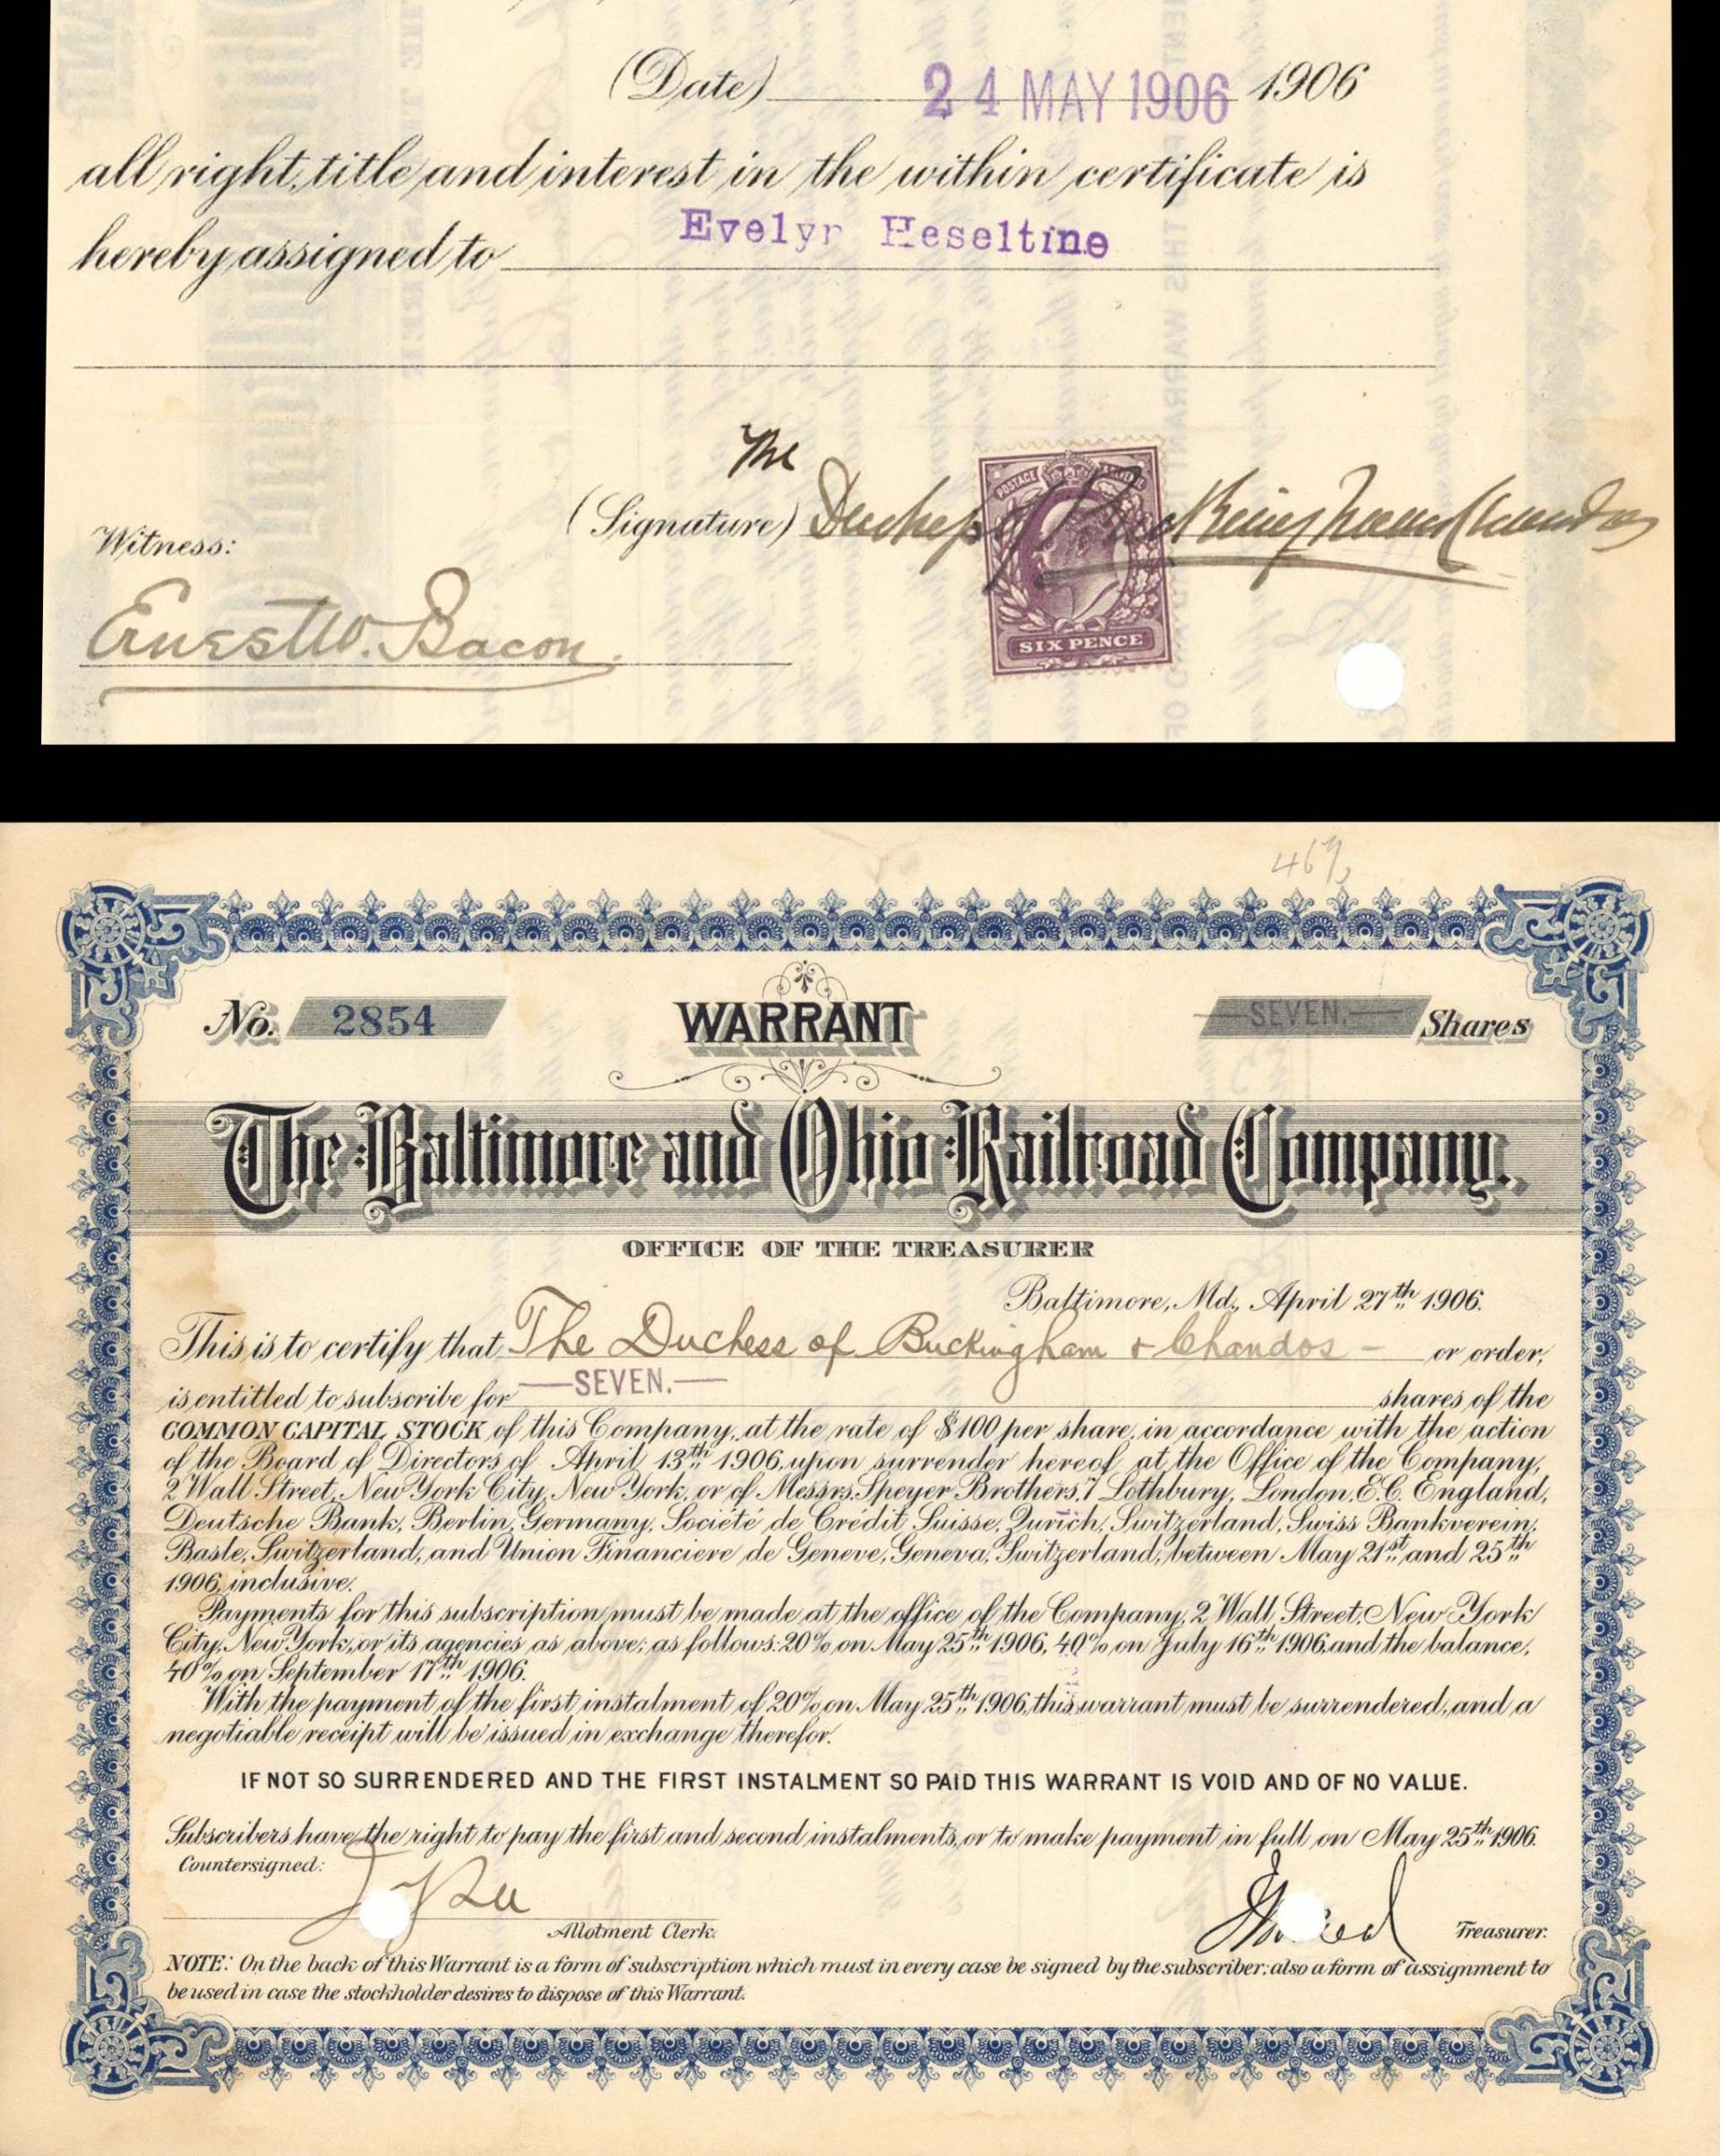 (Date) 24 MAY 1906 1906
all right, title and interest in the within certificate is
hereby assigned to Evelyn Heseltine
The
(Signature) Duchess of Buckingham Chandos
Witness:
POSTAGE
Ernest W. Bacon.
SIX PENCE
46
No. 2854 WARRANT SEVEN. Shares
The Baltimore and Ohio Railroad Company.
OFFICE OF THE TREASURER
Baltimore, Md., April 27th 1906.
This is to certify that The Duchess of Buckingham & Chandos - or order,
is entitled to subscribe for SEVEN. shares of the
COMMON CAPITAL STOCK of this Company, at the rate of $100 per share, in accordance with the action
of the Board of Directors of April 13th 1906, upon surrender hereof at the Office of the Company,
2 Wall Street, New York City, New York, or of Messrs. Speyer Brothers, 7 Lothbury, London, E.C. England,
Deutsche Bank, Berlin, Germany, Societé de Crédit Suisse, Zurich, Switzerland, Swiss Bankverein,
Basle, Switzerland, and Union Financiere de Geneve, Geneva, Switzerland, between May 21st and 25th
1906, inclusive.
Payments for this subscription must be made at the office of the Company, 2 Wall Street, New York
City, New York, or its agencies as above; as follows: 20% on May 25th 1906, 40% on July 16th 1906, and the balance,
40% on September 17th 1906.
With the payment of the first instalment of 20% on May 25th 1906, this warrant must be surrendered, and a
negotiable receipt will be issued in exchange therefor.
IF NOT SO SURRENDERED AND THE FIRST INSTALMENT SO PAID THIS WARRANT IS VOID AND OF NO VALUE.
Subscribers have the right to pay the first and second instalments, or to make payment in full on May 25th 1906.
Countersigned:
Allotment Clerk. Treasurer.
NOTE: On the back of this Warrant is a form of subscription which must in every case be signed by the subscriber; also a form of assignment to
be used in case the stockholder desires to dispose of this Warrant.